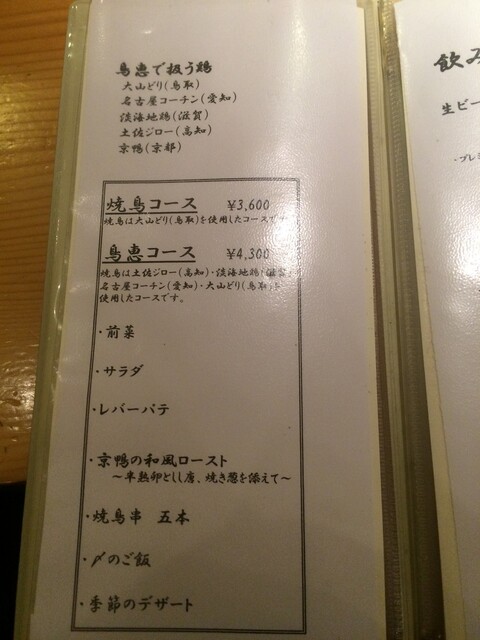 鳥恵で扱う鶏
大山どり(鳥取)
名古屋コーチン(愛知)
淡海地鶏(滋賀)
土佐ジロー(高知)
京鴨(京都)
焼鳥コース ¥3,600
焼鳥は大山どり(鳥取)を使用したコースです。
鳥恵コース ¥4,300
焼鳥は土佐ジロー(高知)・淡海地鶏(滋賀)
名古屋コーチン(愛知)・大山どり(鳥取)を
使用したコースです。
・前菜
・サラダ
・レバーパテ
・京鴨の和風ロースト
〜半熟卵としし唐、焼き葱を添えて〜
・焼鳥串 五本
・〆のご飯
・季節のデザート
飲み
生ビー
・プレミ